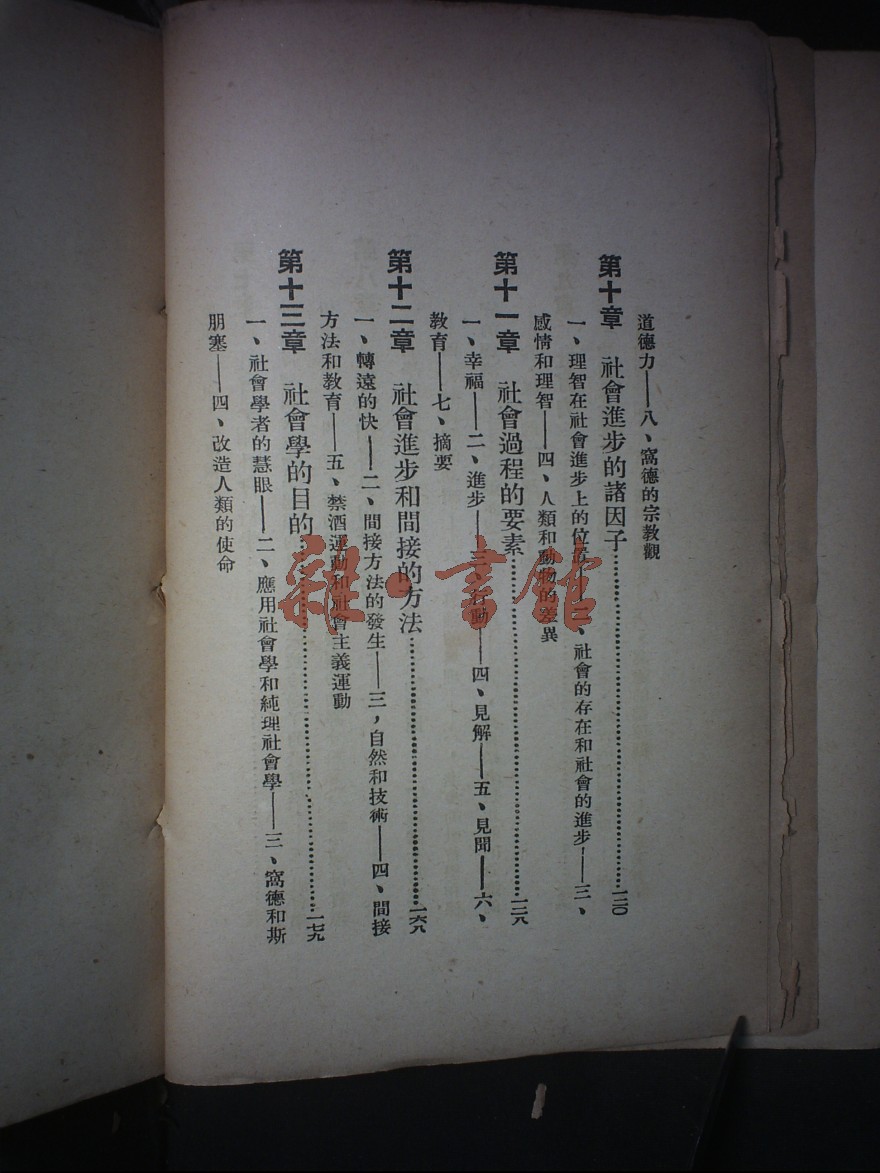 道德力——八、窩德的宗敎觀
第十章　社會進步的諸因子……一二〇
一、理智在社會進步上的位置——二、社會的存在和社會的進步——三、
感情和理智——四、人類和動物的差異
第十一章　社會過程的要素……一二八
一、幸福——二、進步——三、行動——四、見解——五、見聞——六、
敎育——七、摘要
第十二章　社會進步和間接的方法……一六八
一、轉遠的快——二、間接方法的發生——三，自然和技術——四、間接
方法和敎育——五、禁酒運動和社會主義運動
第十三章　社會學的目的……一七九
一、社會學者的慧眼——二、應用社會學和純理社會學——三、窩德和斯
朋塞——四、改造人類的使命
雜·書館